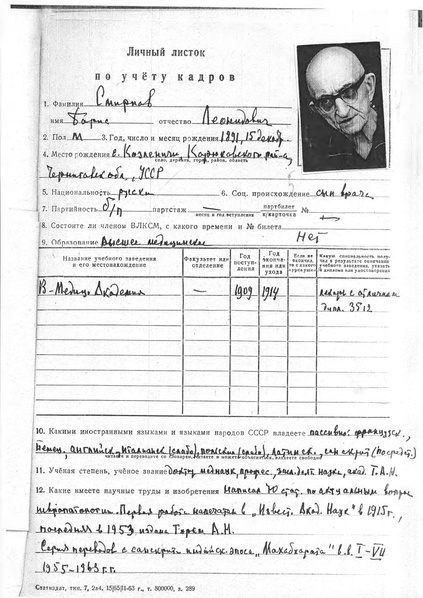 Личный листок
по учёту кадров
1. Фамилия Смирнов
имя Борис отчество Леонидович
2. Пол М 3. Год, число и месяц рождения 1891, 15 декаб.
4. Место рождения с. Козляничи, Корюковского района,
село, деревня, город, район, область
Черниговск обл., УССР
5. Национальность русск. 6. Соц. происхождение сын врача
7. Партийность б/п партстаж — партбилет
месяц и год вступления к/карточка № —
8. Состоите ли членом ВЛКСМ, с какого времени и № билета Нет
9. Образование Высшее медицинское
Название учебного заведения и его местонахождение
Факультет или отделение
Год поступления
Год окончания или ухода
Если не окончил, то с какого курса
Какую специальность получил в результате окончания учебного заведения, указать № диплома или удостоверения
В-Медиц. Академия — 1909 1914 лекарь с отличием
дипл. 3512
10. Какими иностранными языками и языками народов СССР владеете пассивно: французск.,
немец., английск., итальянск (слабо), польским (слабо), латинск., санскрит (посредст.)
читаете и переводите со словарём, читаете и можете объясняться, владеете свободно
11. Учёная степень, учёное звание докт. мед наук, профес., засл. деят. науки, акад. Т.А.Н.
12. Какие имеете научные труды и изобретения Написал 40 стат. по актуальным вопр.
невропатологии. Первая работа напечатана в „Извест. Акад. Наук" в 1915г.,
последняя в 1953 издана Туркм А.Н.
Серия переводов с санскрита индийск. эпоса „Махабхарата" в.в. I–VII
1955–1963 г.г.
Спатиздат, тип. 7, 2а4, 15|65|II-63 г., т. 800000, з. 289